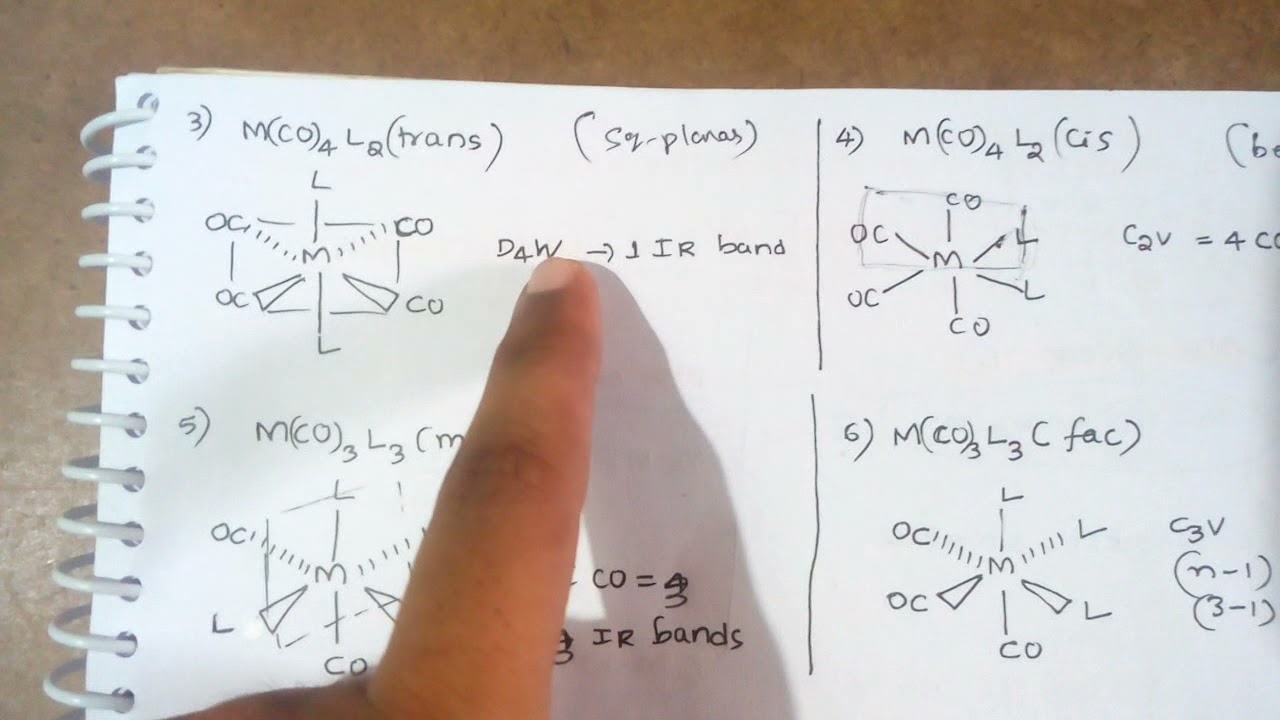 3) M(CO)₄L₂(trans) (Sq-planar)
L
OC CO
M
OC CO
L
D₄h → 1 IR band
4) M(CO)₄L₂(cis) (be
CO
OC L
M
OC L
CO
C₂v = 4 CO
5) M(CO)₃L₃(m
L
OC
M
L
CO
CO = 3
3 IR bands
6) M(CO)₃L₃(fac)
L
OC L
M
OC L
CO
C₃v
(n-1)
(3-1)